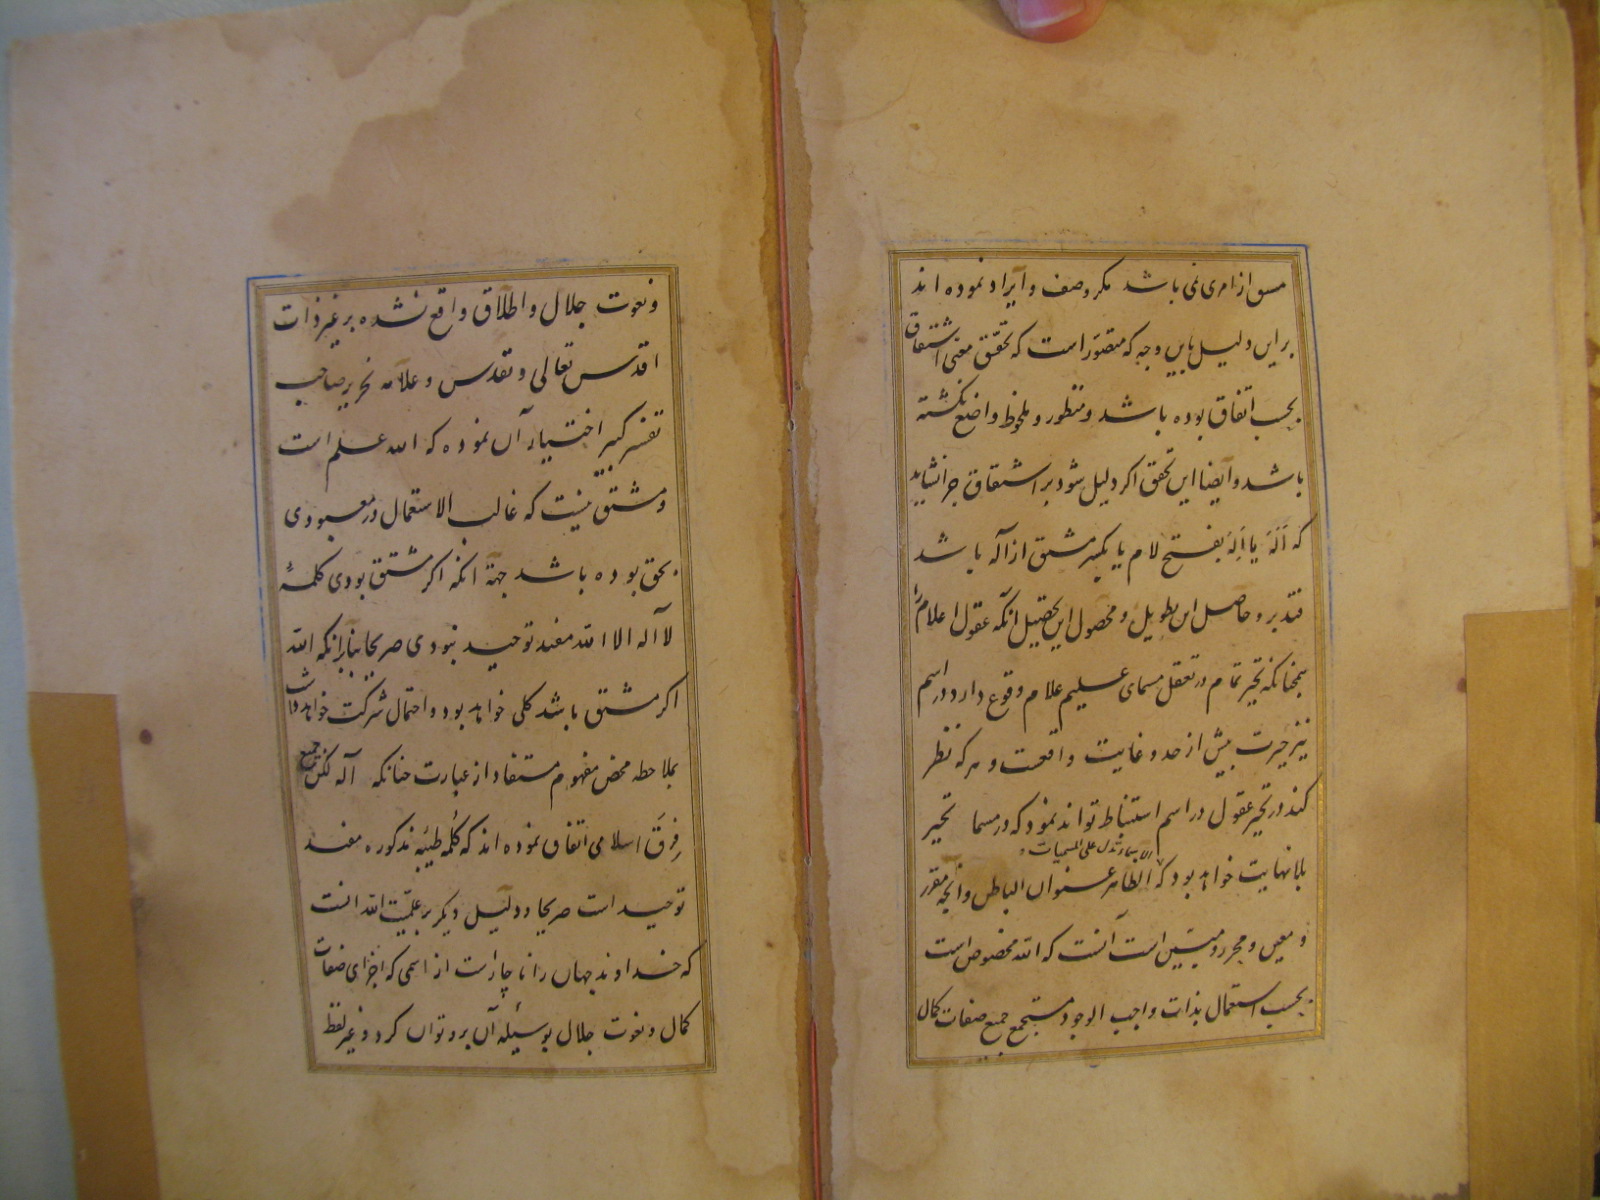 مسق از امری نمی باشد مکر وصف و ایراد نموده اند
بر این دلیل باین وجه که متصوّر است که تحقّق معنی اشتقاق
بحسب اتفاق بوده باشد و منظور و ملحوظ واضع نکشته
باشد و ایضا این تحقق اکر دلیل شود بر اشتقاق چرا نشاید
که اَلَهَ یا اَلِهَ بفتح لام یا بکسر مشتق از اله باشد
فتدبر و حاصل این تطویل و محصول این تحصیل انکه عقول اعلام را
همچنانکه تحیر تمام در تعقل مسمای علیم علام وقوع دارد در اسم
نیز حیرت بیش از حد و غایت واقعست و هر که نظر
کند در تحیر عقول در اسم استنباط تواند نمود که در مسما تحیر
الاسماء تدل علی المسمیات
بلا نهایت خواهد بود که الظاهر عنوان الباطن و انچه مقرر
و معین و محرر و مبیّن است آنست که الله مخصوص است
بحسب استعمال بذات واجب الوجود مستجمع جمیع صفات کمال
و نعوت جلال و اطلاق واقع نشده بر غیر ذات
اقدس تعالی و تقدس و علامه نحریر صاحب
تفسر کبیر اختیار آن نموده که الله علم است
و مشتق نیست که غالب الاستعمال در معبودی
بحق بوده باشد جهة انکه اکر مشتق بودی کلمهٔ
لا اله الا الله مفید توحید نبودی صریحا بنابر انکه الله
اکر مشتق باشد کلی خواهد بود و احتمال شرکت خواهد داشت
بملاحطه محض مفهوم مستفاد از عبارت چنانکه اله لکن جمیع
فِرَق اسلامی اتفاق نموده اند که کلمه طیّبه مذکوره مفید
توحید است صریحا و دلیل دیکر بر علمیّت الله انست
که خداوند جهان را ناچار است از اسمی که اجرای صفات
کمال و نعوت جلال بوسیله آن برو توان کرد و غیر لفظ